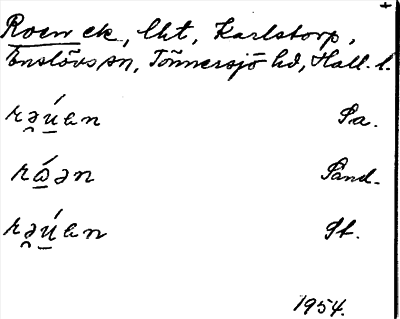 +
Roen ek, lht, Karlstorp,
Enslövs sn, Tönnersjö hd, Hall. l.
rə̯ú̱en Sa.
rá̱ən Sand.
rə̯ú̱en St.
1954.